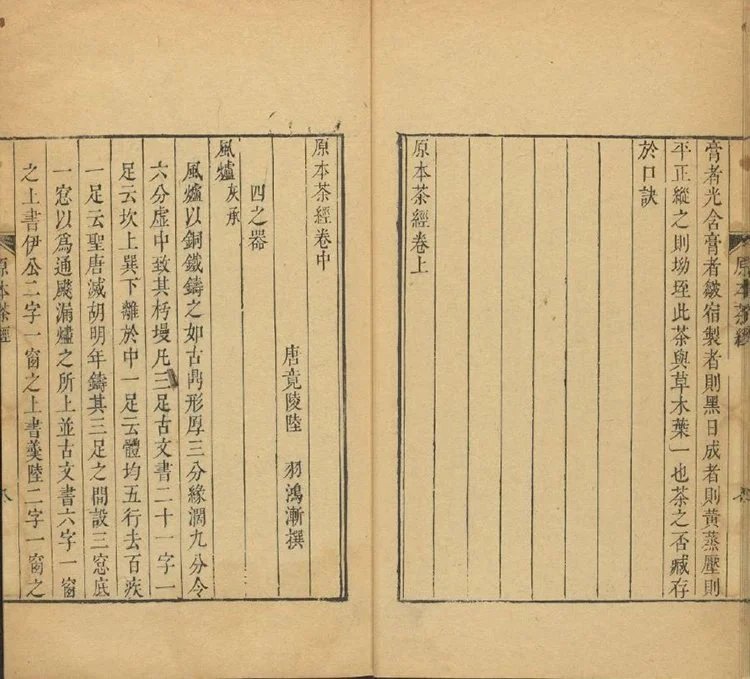 膏者光含膏者皺宿製者則黑日成者則黃蒸壓則
平正縱之則坳垤此茶與草木葉一也茶之否臧存
於口訣
原本茶經卷上
原本茶經
原本茶經卷中
唐竟陵陸 羽鴻漸撰
四之器
風爐 灰承
風爐以銅鐵鑄之如古鼎形厚三分緣濶九分令
六分虛中致其杇墁凡三足古文書二十一字一
足云坎上巽下離於中一足云體均五行去百疾
一足云聖唐滅胡明年鑄其三足之間設三窓底
一窓以爲通飈漏燼之所上並古文書六字一窗
之上書伊公二字一窗之上書羹陸二字一窗之
原本茶經